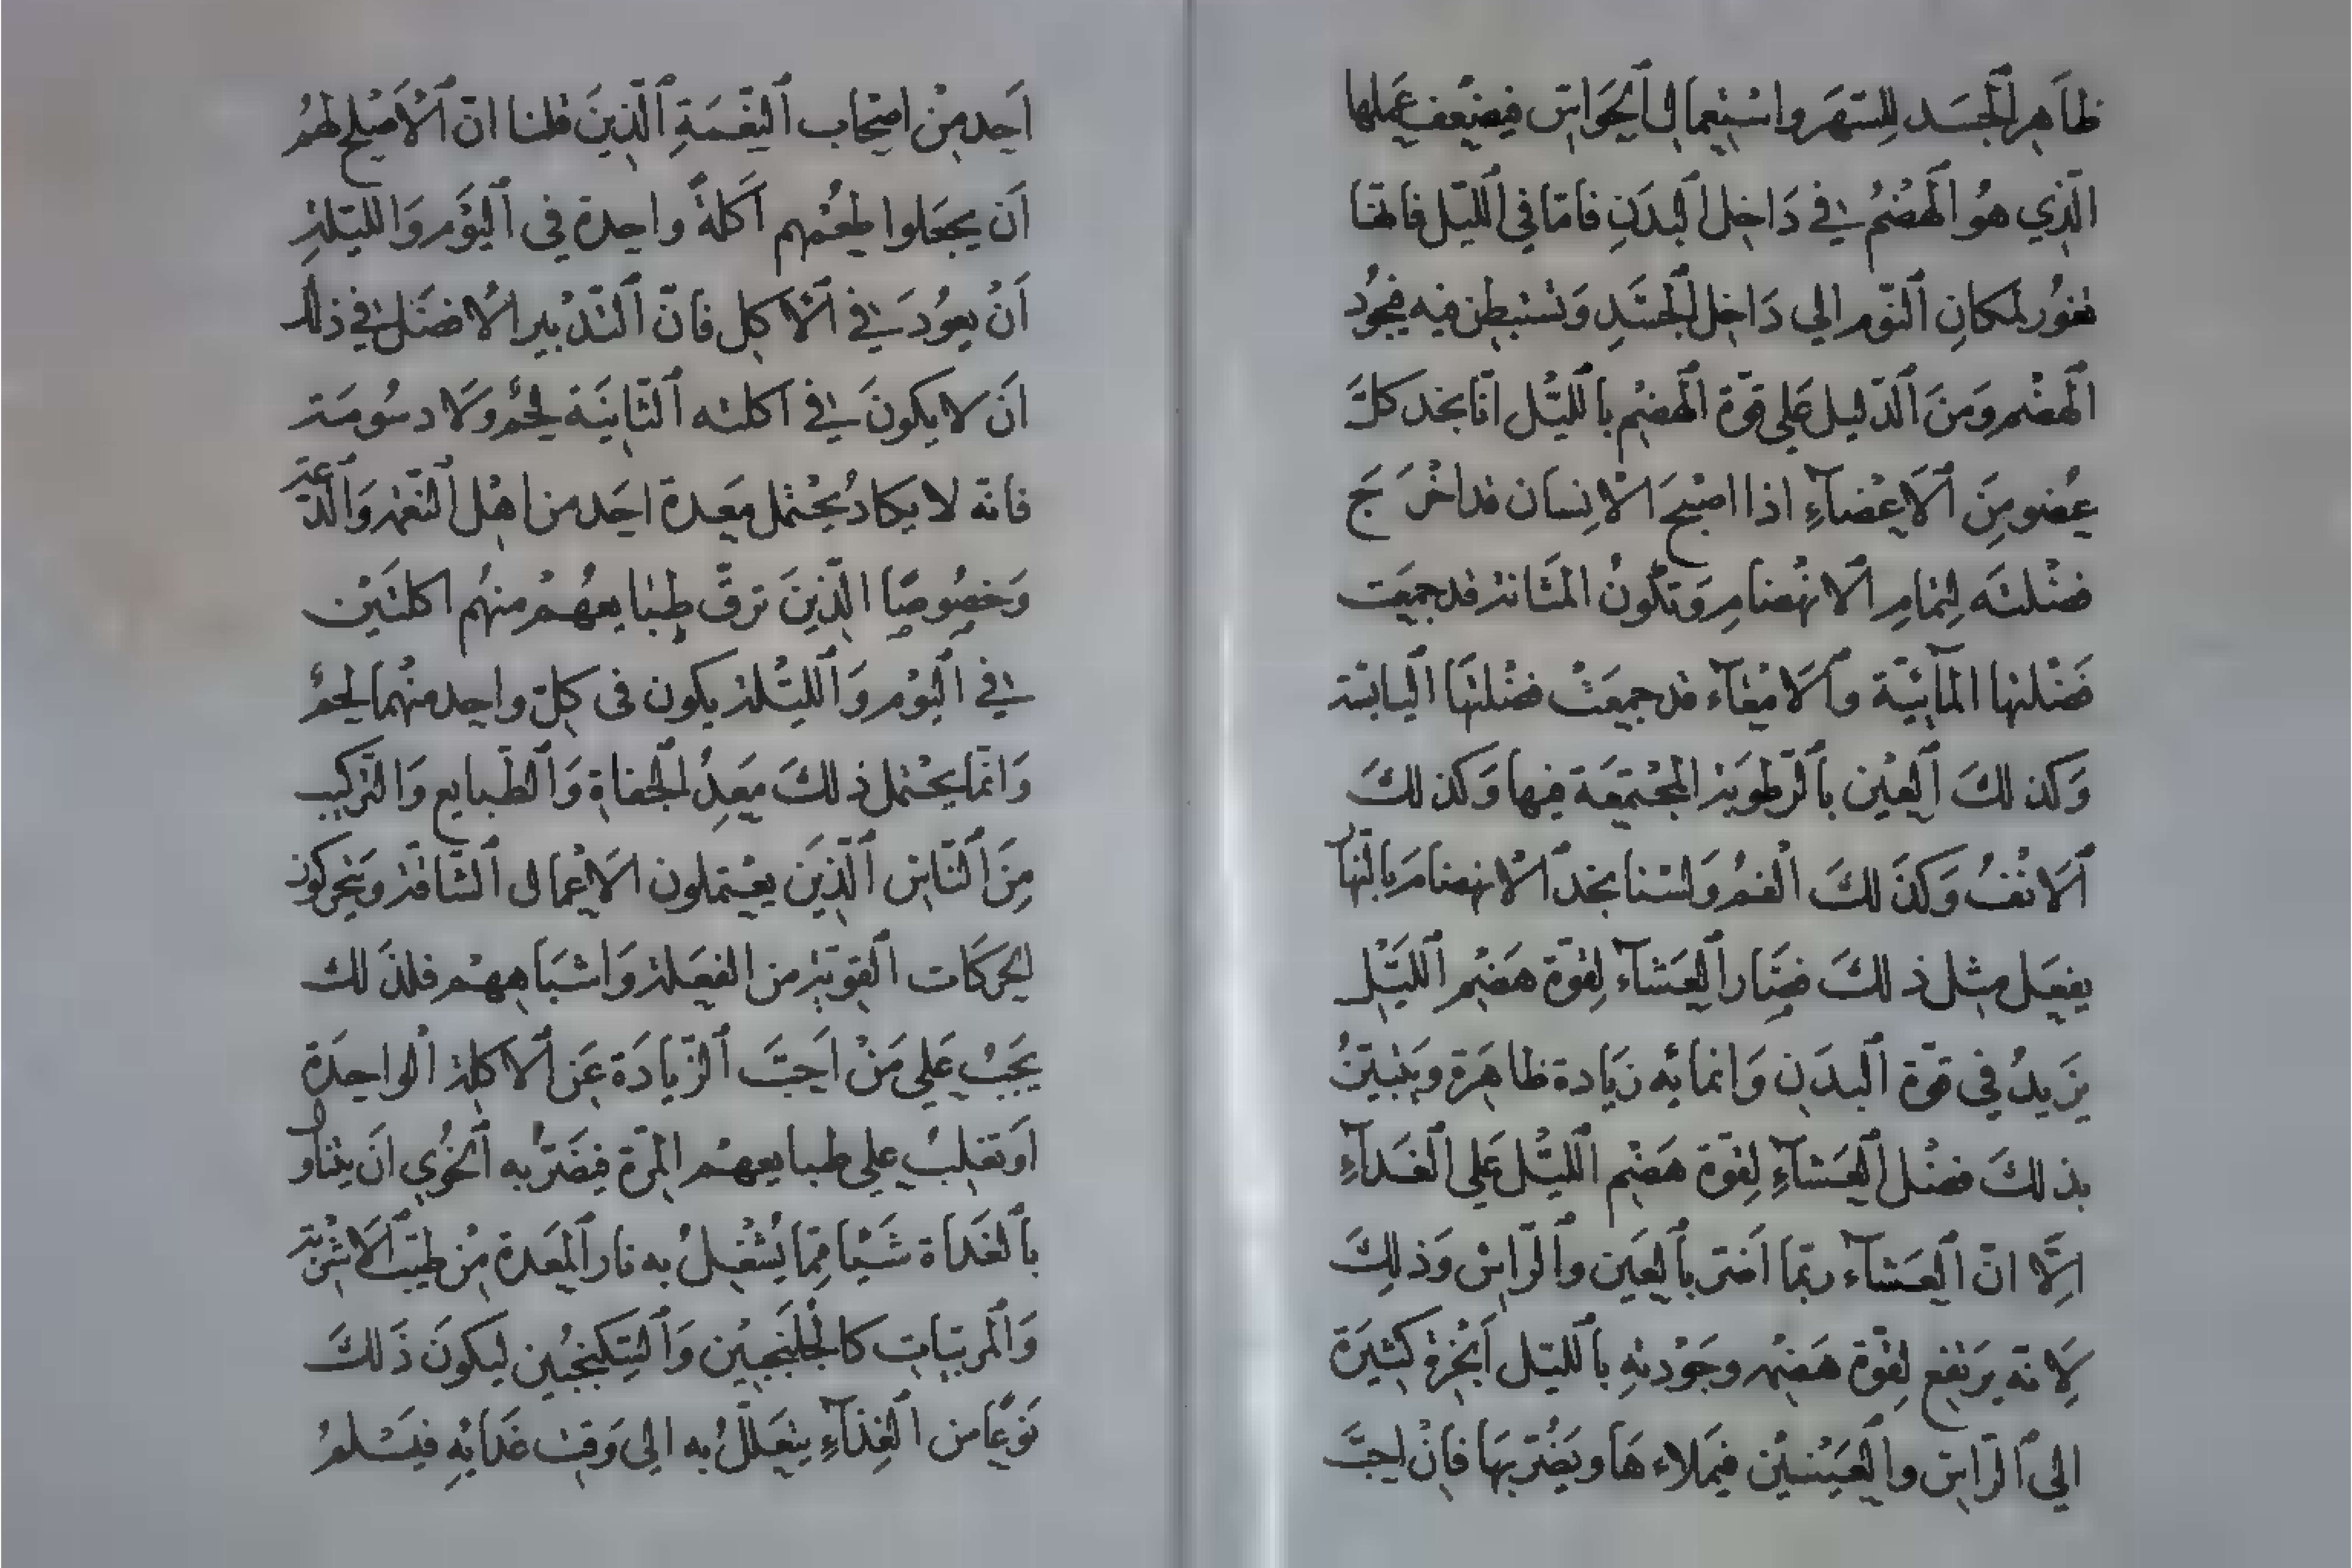 ظاهر الجسد للسهر واستعمال الحواس فيضعف عملها
الذي هو الهضم في داخل البدن فاما في الليل فانها
تغور لمكان النوم الي داخل الجسد وتستبطن فيه فيجود
الهضم ومن الدليل علي قوة الهضم بالليل انا نجد كل
عضو من الاعضاء اذا اصبح الانسان قد اخرج
فضلته لتمام الانهضام وتكون المثانة قد جمعت
فضلتها المائية والامعاء قد جمعت فضلتها اليابسة
وكذلك العين بالرطوبة المجتمعة فيها وكذلك
الانف وكذلك الفم ولسنا نجد الانهضام بالنهار
يفعل مثل ذلك فصار العشاء لقوة هضم الليل
يزيد في قوة البدن وانمائه زيادة ظاهرة ويتبين
بذلك فضل العشاء لقوة هضم الليل علي الغداء
الا ان العشاء ربما اضر بالعين والراس وذلك
لانه يرتفع لقوة هضمه وجودته بالليل ابخرة كثيرة
الي الراس والعينين فيملاءها ويضر بها فان احب
احد من اصحاب النعمة الذين قلنا ان الاصلح لهم
ان يجعلوا طعمهم اكلة واحدة في اليوم والليلة
ان يعود في الاكل فان التدبير الافضل في ذلك
ان لا يكون في اكلته الثانية لحم ولا دسومة
فانه لا يكاد يحتمل معدة احد من اهل النعم والدعة
وخصوصا الذين ترق طبايعهم منهم اكلتين
في اليوم والليلة يكون في كل واحد منهما لحم
وانما يحتمل ذلك معد الجفاة والطبايع والتركيب
من الناس الذين يعتملون الاعمال الشاقة ويتحركون
الحركات القوية من الفعلة واشباههم فلذلك
يجب علي من احب الزيادة عن الاكلة الواحدة
او تغلب علي طبايعهم المرة فيضر به الخوي ان يتناول
بالغداة شيا مما يشغل به نار المعدة من طيب الاشربة
والمربيات كالجلنجبين والسكنجبين ليكون ذلك
نوعا من الغذاء يتعلل به الي وقت غدايه فيسلم